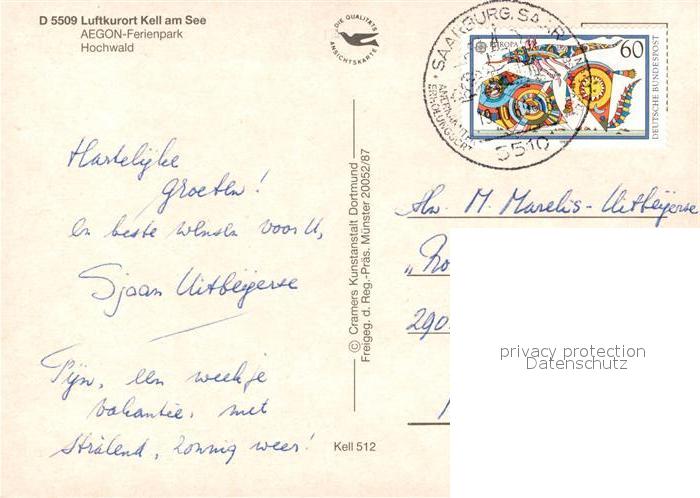 D 5509 Luftkurort Kell am See
AEGON-Ferienpark
Hochwald
DIE QUALITÄTS
ANSICHTSKARTE
SAARBURG, SAAR
5510
EUROPA
60
DEUTSCHE BUNDESPOST
Hartelijke
groeten!
en beste wensen voor U,
Sjaan Uitbeijerse
Fijn, een weekje
vakantie, met
stralend, zonnig weer!
© Cramers Kunstanstalt Dortmund
Freigeg. d. Reg.-Präs. Münster 20052/87
Kell 512
M. Marelis-Uitbeijerse
290
privacy protection
Datenschutz